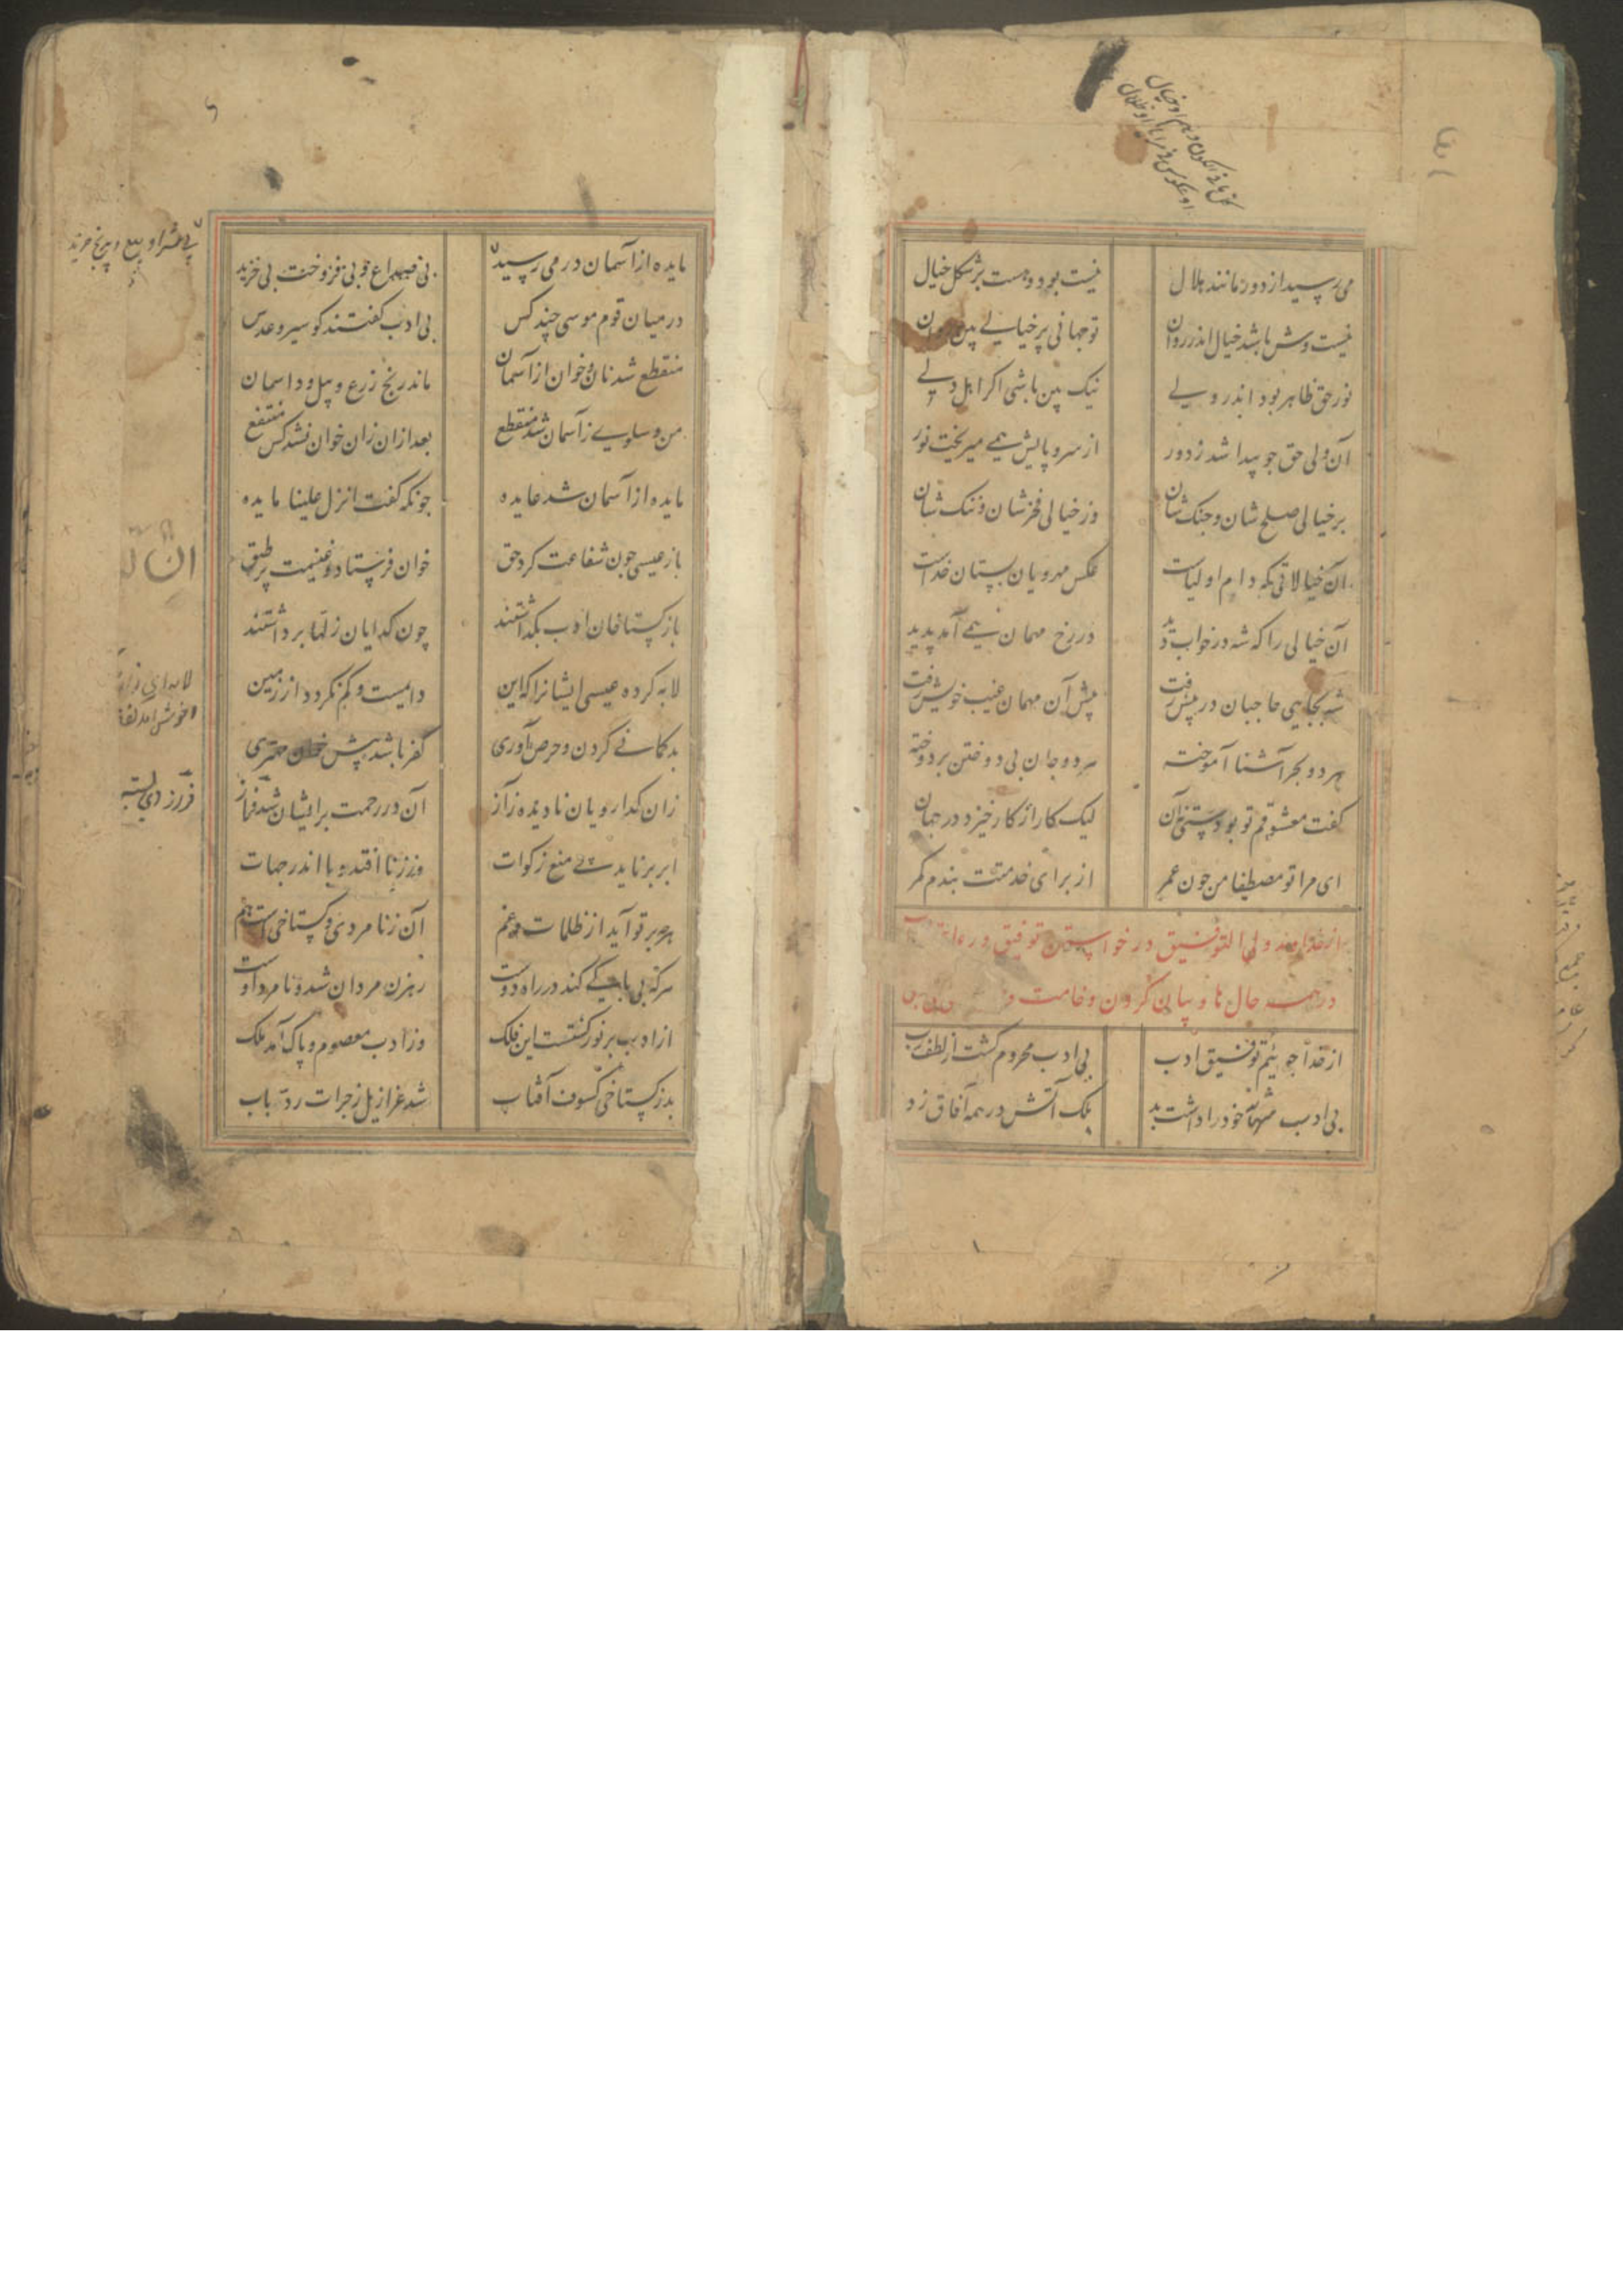 می رسید از دور مانند هلال نیست بود و هست بر شکل خیال
نیست وش باشد خیال اندر روان تو جهانی بر خیالی بین روان
نور حق ظاهر بود اندر ولی نیک بین باشی اکر اهل دلی
آن ولی حق جو پیدا شد ز دور از سر و پایش همی میریخت نور
بر خیالی صلح شان و جنک شان وز خیالی فخر شان و ننک شان
آن خیالاتی که دام اولیاست عکس مهرویان بستان خداست
آن خیالی را که شه در خواب دید در رخ مهمان همی آمد پدید
شه بجای حاجبان در پیش رفت پیش آن مهمان غیب خویش رفت
هر دو بحر آشنا آموخته هر دو جان بی دوختن بر دوخته
کفت معشوقم تو بودستی نه آن لیک کار از کار خیزد در جهان
ای مرا تو مصطفا من جون عمر از برای خدمتت بندم کمر
از خداوند ولی التوفیق در خواستن توفیق رعایت
در همه حال ها و بیان کردن وخامت
از خدا جوییم توفیق ادب بی ادب محروم کشت از لطف رب
بی ادب تنها نه خود را داشت بد بلک آتش در همه آفاق زد
مایده از آسمان در می رسید بی صداع و بی فروخت بی خرید
در میان قوم موسی چند کس بی ادب کفتند کو سیر و عدس
منقطع شد نان و خوان از آسمان ماند رنج زرع و بیل و داسمان
من و سلوی ز آسمان شد منقطع بعد از ان زان خوان نشد کس منتفع
مایده از آسمان شد عایده جونکه کفت انزل علینا مایده
باز عیسی جون شفاعت کرد حق خوان فرستاد و غنیمت بر طبق
باز کستاخان ادب بکذاشتند چون کدایان زلها برداشتند
لابه کرده عیسی ایشانرا که این دایمست و کم نکردد از زمین
بد کمانی کردن و حرص آوری کفر باشد پیش خوان مهتری
زان کدا رویان نادیده ز آز آن در رحمت بر ایشان شد فراز
ابر برناید پی منع زکوات وز زنا افتد وبا اندر جهات
هر چه بر تو آید از ظلمات و غم آن ز نامردی و کستاخی است هم
هر که بی باکی کند در راه دوست رهزن مردان شد و نامرد اوست
از ادب پر نور کشتست این فلک وز ادب معصوم و پاک آمد ملک
بد ز کستاخی کسوف آفتاب شد عزازیل ز جرات رد باب